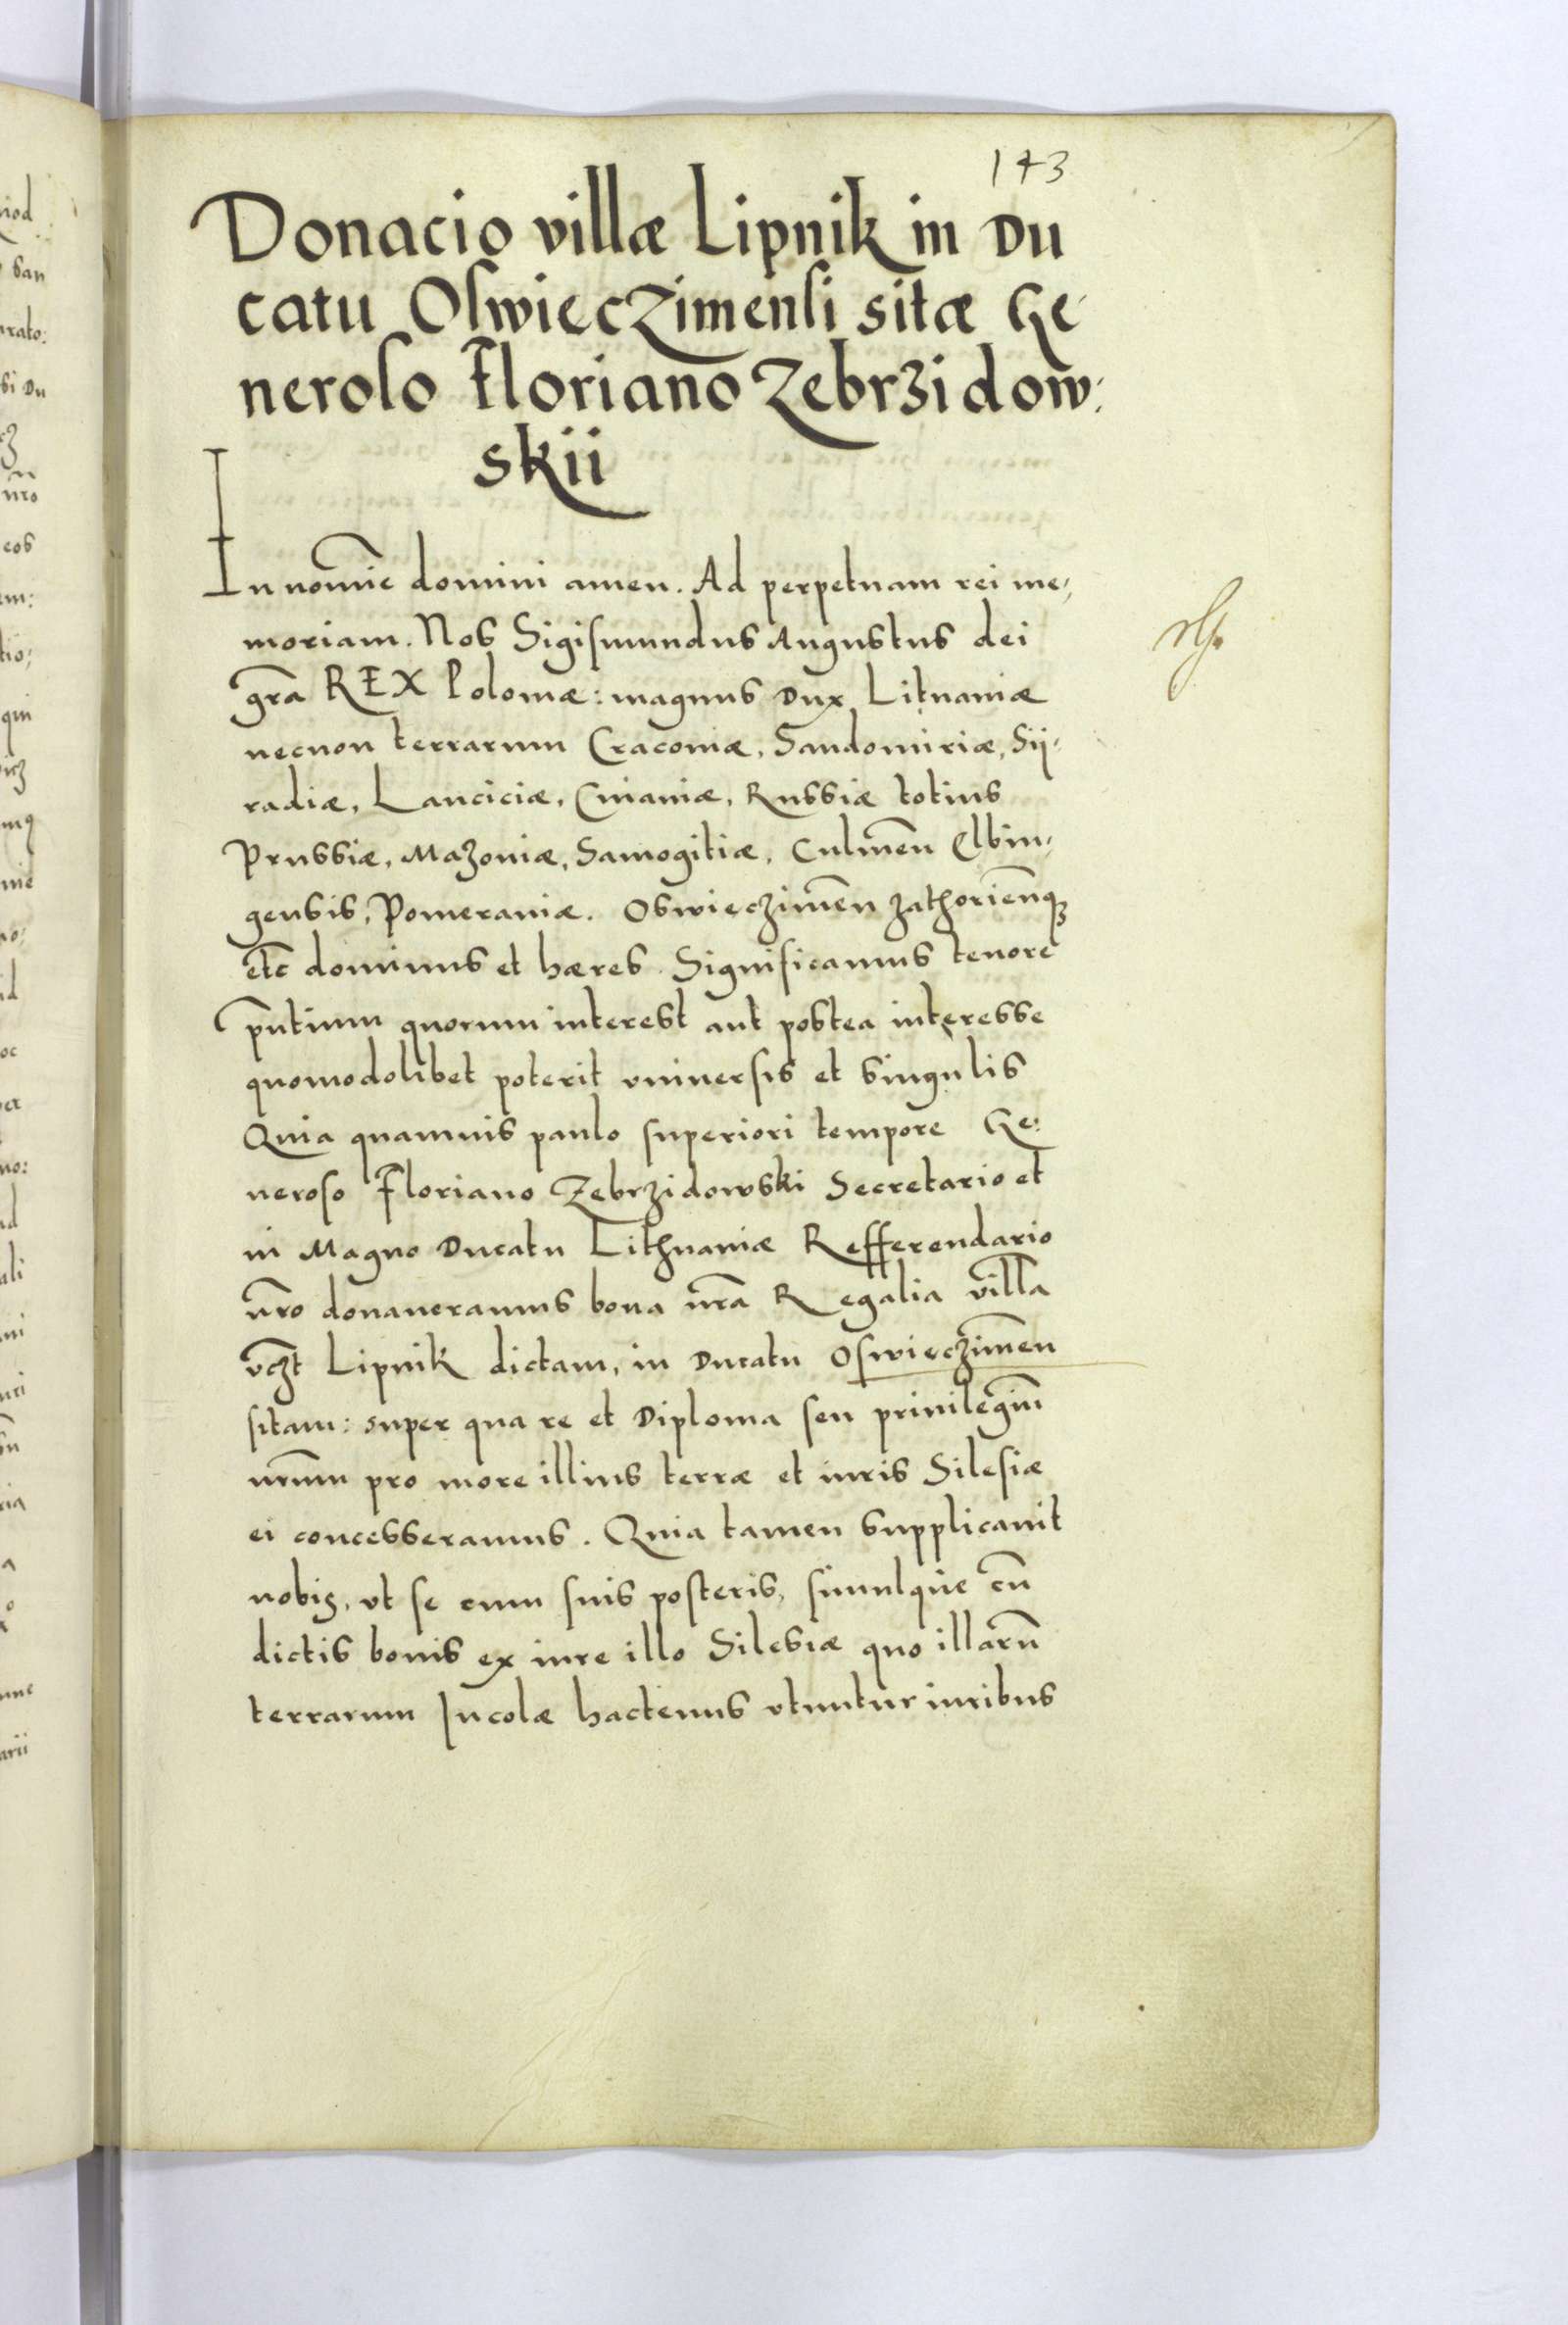 143
Donacio villæ Lipnik in Du
catu Oswieczimensi sitæ Ge-
neroso Floriano Zebrzidow:
skii
In nomīe domini amen. Ad perpetuam rei me,
moriam. Nos Sigismundus Augustus dei
gr̄a REX Poloniæ: magnus Dux Lituaniæ
necnon terrarum Cracoviæ, Sandomiriæ, Sij-
radiæ, Lanciciæ, Cuiaviæ, Russiæ totius
Prussiæ, Mazoviæ, Samogitiæ, Culmēn Elbin-
gensis, Pomeraniæ. Oswieczimēn Zathoriēnqꝫ
etc̄ dominus et hæres. Significamus tenore
pn̄tium quorum interest aut postea interesse
quomodolibet poterit universis et singulis
Quia quamvis paulo superiori tempore Ge:
neroso Floriano Zebrzidowski Secretario et
in Magno Ducatu Lithuaniæ Refferendario
nr̄o donaveramus bona nr̄a Regalia villā
vcꝫt Lipnik dictam, in Ducatu Oswieczimēn
sitam: super qua re et Diploma seu privilegiū
nr̄um pro more illius terræ et iuris Silesiæ
ei concesseramus. Quia tamen supplicavit
nobis, ut se cum suis posteris, simulque cū
dictis bonis ex iure illo Silesiæ quo illarū
terrarum Incolæ hactenus utuntur iuribus